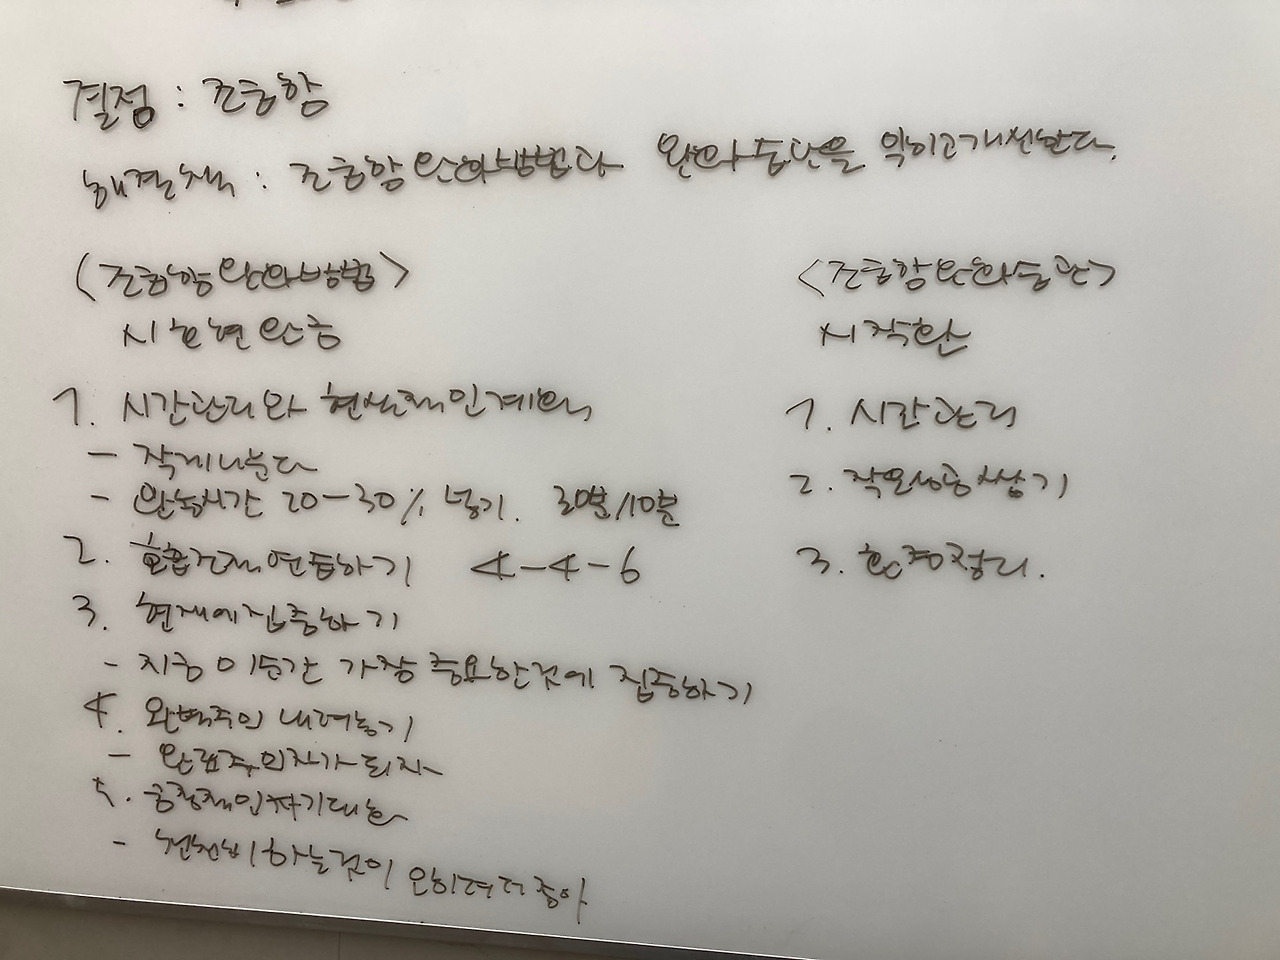 결점 : 조급함
해결책 : 조급함완화방법과 완화습관을 익히고개선한다.
<조급함완화방법>
<조급함완화습관>
시호현완긍
시작환
1. 시간관리와 현실적인계획
1. 시간관리
- 작게나눈다
2. 작은성공쌓기
- 완충시간 20-30% 넣기. 30분/10분
2. 호흡근육연습하기 4-4-6
3. 환경정리.
3. 현재에집중하기
- 지금 이순간 가장 중요한것에 집중하기
4. 완벽주의 내려놓기
- 완료주의자가 되자
5. 긍정적인자기대화
- 천천히하는것이 오히려더좋아